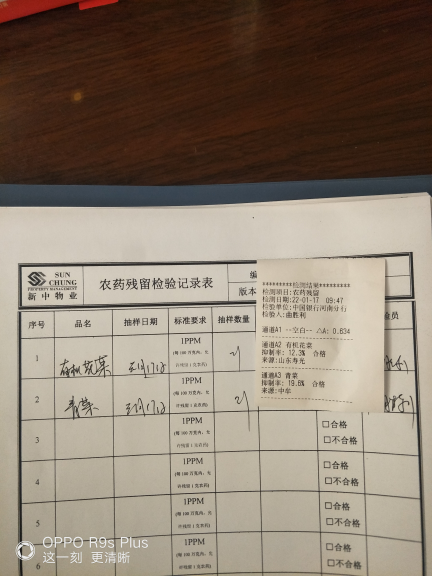 SUN
CHUNG
PROPERTY MANAGEMENT
新中物业
农药残留检验记录表
编
版本
序号 品名 抽样日期 标准要求 抽样数量 检员
1 有机花菜 1PPM
(每100万克内,允
许残留1克农药)
2 青菜 1PPM
(每100万克内,允
许残留1克农药)
3 1PPM
(每100万克内,允
许残留1克农药)
□合格
□不合格
4 1PPM
(每100万克内,允
许残留1克农药)
□合格
□不合格
5 1PPM
(每100万克内,允
许残留1克农药)
□合格
□不合格
6 1PPM
(每100万克内,允
□合格
□不合格
*********检测结果*********
检测项目:农药残留
检测日期:22-01-17 09:47
检验单位:中国银行河南分行
检验人:曲胜利
通道A1 --空白-- △A: 0.834
通道A2 有机花菜
抑制率: 12.3% 合格
来源:山东寿光
通道A3 青菜
抑制率: 19.6% 合格
来源:中牟
OPPO R9s Plus
这一刻 更清晰